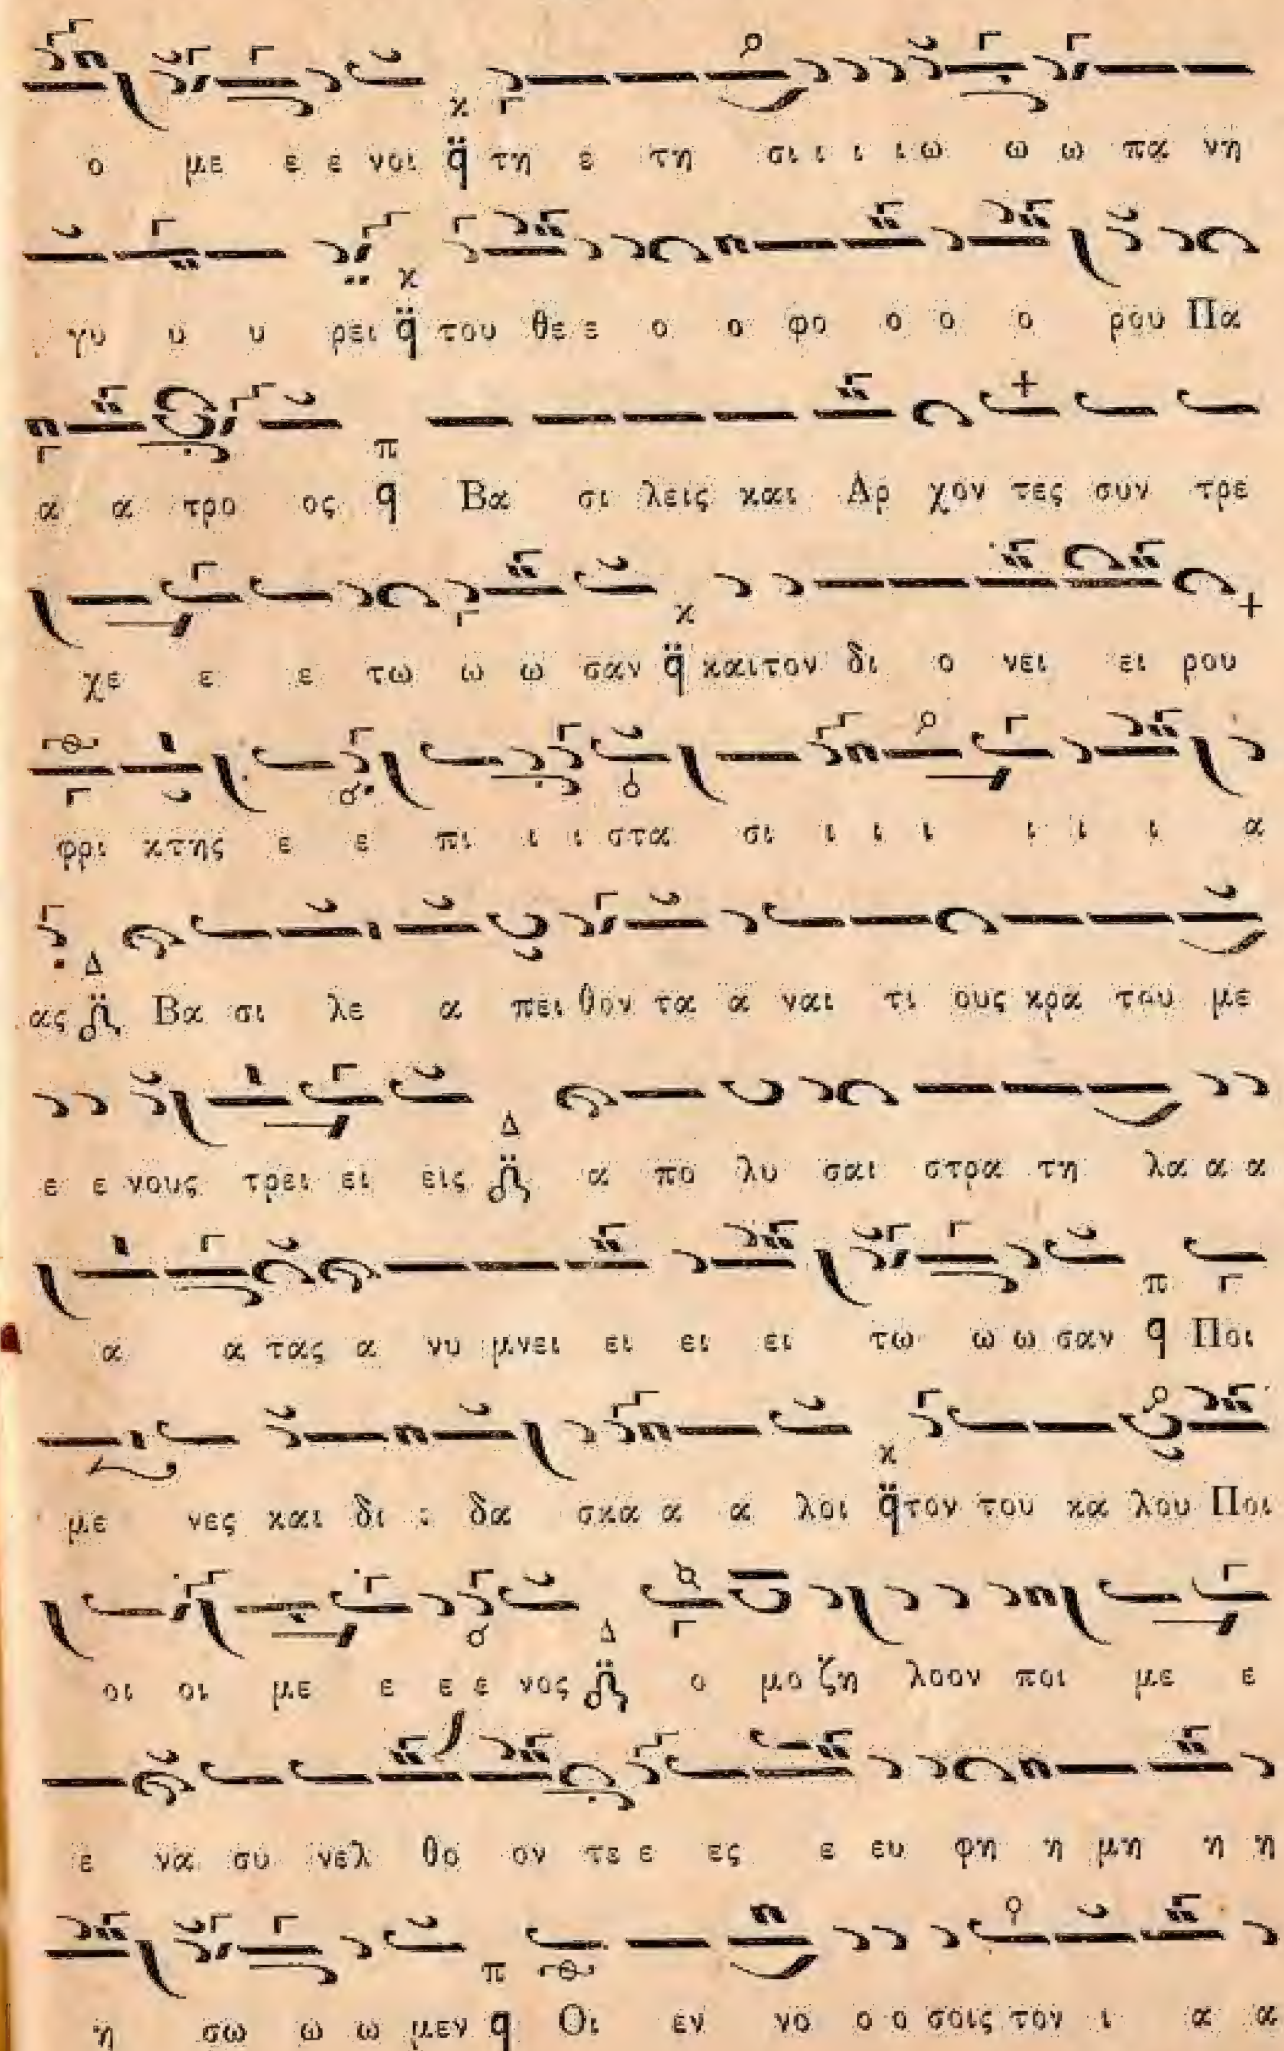 ο με ε ε νοι q̈ τη ε τη σι ι ι ι ω ω ω πα νη
γυ υ υ ρει q̈ του θε ε ο ο φο ο ο ο ρου Πα
α α τρο ος q Βα σι λεις και Αρ χον τες συν τρε
χε ε ε τω ω ω σαν q̈ και τον δι ο νει ει ρου
φρι κτης ε ε πι ι ι στα σι ι ι ι ι ι ι α
ας Βα σι λε α πει θον τα α ναι τι ους κρα του με
ε ε νους τρει ει εις α πο λυ σαι στρα τη λα α α
α α τας α νυ μνει ει ει ει τω ω ω σαν q Ποι
με νες και δι ι δα σκα α α λοι q̈ τον του κα λου Ποι
οι οι με ε ε ε νος ο μο ζη λοον ποι με ε
ε να συ νελ θο ον τε ε ες ε ευ φη η μη η η
η σω ω ω μεν q Οι εν νο ο ο σοις τον ι α α